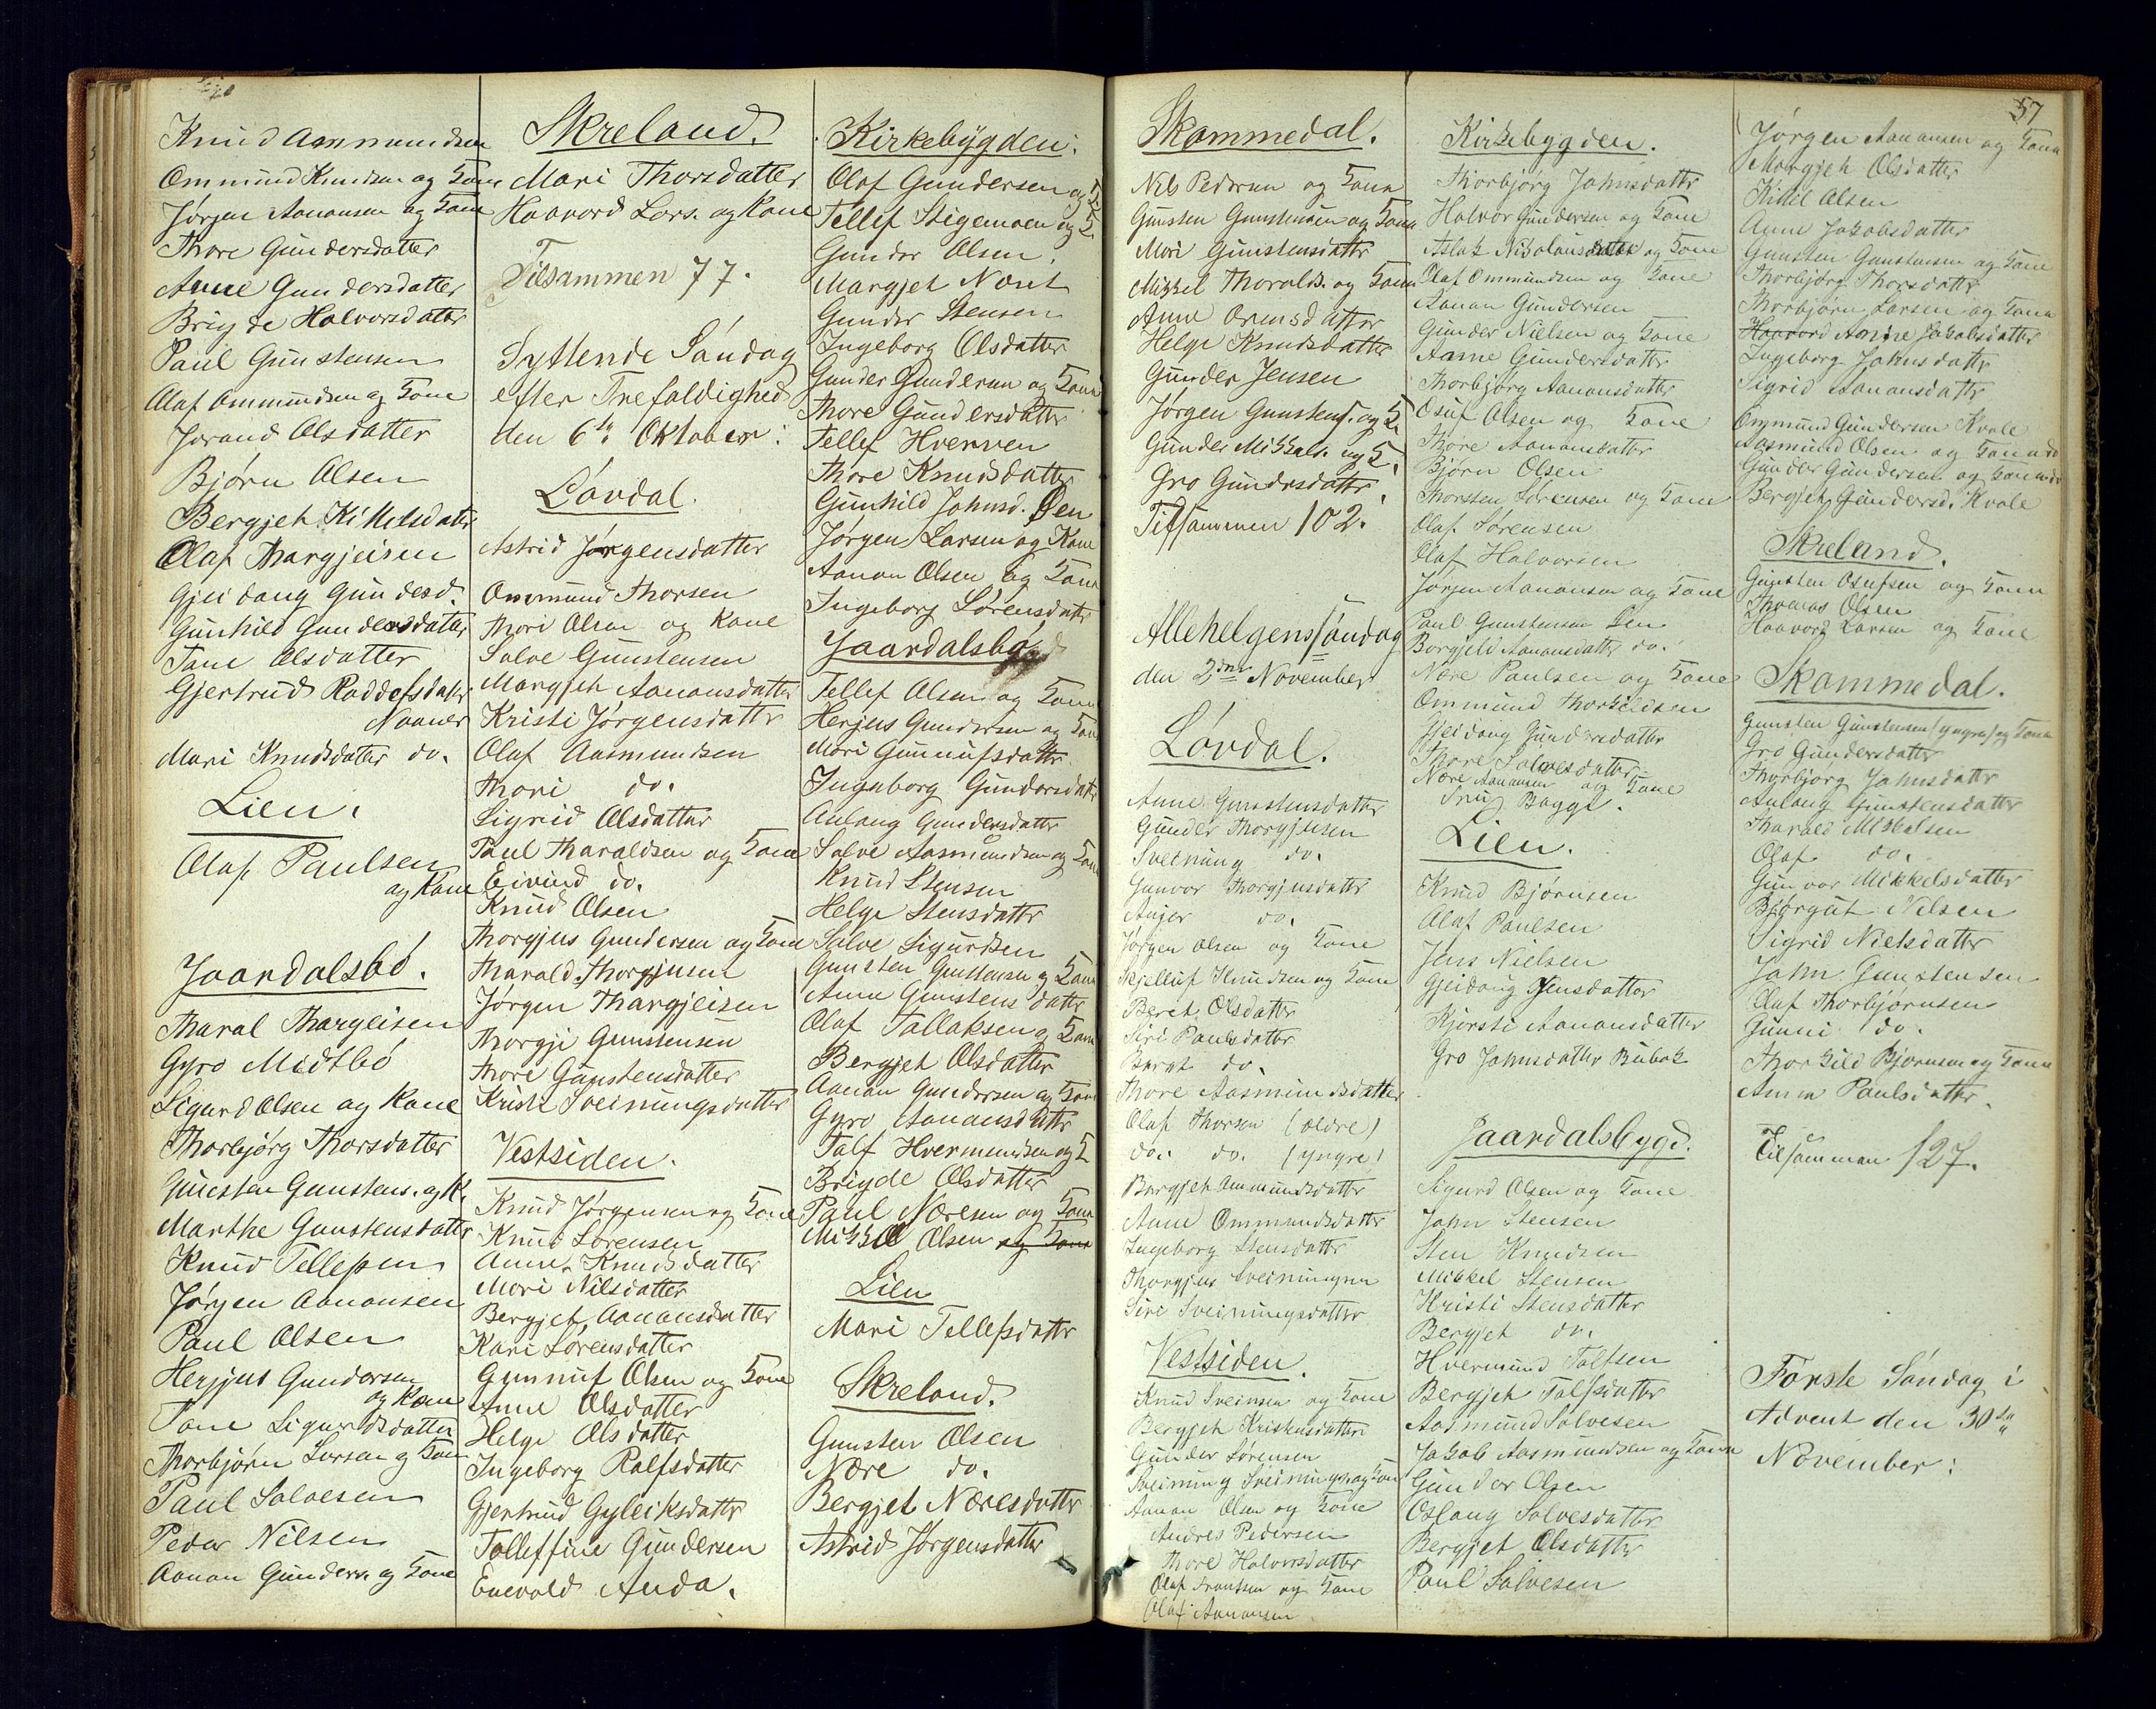 Knud Ammundsen
Ommund Knudsen og Kone
Jørgen Aanonsen og Kone
Thore Gundersdatter
Anne Gundersdatter
Brigde Halvorsdatter
Paul Gunstensen
Olaf Ommundsen og Kone
Jorand Olsdatter
Bjørn Olsen
Bergjet Kittelsdatter
Olaf Thargjeisen
Gjeidang Gundersd.
Gunhild Gundersdatter
Tane Olsdatter
Gjertrud Roddefsdatter
Naaner
Mari Knudsdatter do.
Lien.
Olaf Paulsen
og Kone
Jaardalsbö.
Tharal Thargeisen
Gyro Midtbö
Sigurd Olsen og Kone
Thorbjørg Thorsdatter
Gunsten Gunstens. og K.
Marthe Gunstensdatter
Knud Tellefsen
Jørgen Aanonsen
Paul Olsen
Herjus Gundersen
og Kone
Tone Sigurdsdatter
Thorbjørn Larsen og Kone
Paul Salvesen
Peder Nilsen
Aanon Gunders. og Kone
Skreland.
Mari Thorsdatter
Haavord Lars. og Kone
Tilsammen 77.
Syttende Søndag
efter Trefoldighed
den 6te Oktober:
Lövdal.
Astrid Jørgensdatter
Ommund Thorsen
Thore Olsen og Kone
Salve Gunstensen
Margjet Aanonsdatter
Kristi Jørgensdatter
Olaf Aasmundsen
Thori do.
Sigrid Olsdatter
Paul Tharaldsen og Kone
Eivind do.
Knud Olsen
Thorgjus Gundersen og Kone
Tharald Thorgjusen
Jørgen Thargjeisen
Thorgji Gunstensen
Thore Gunstensdatter
Kristi Sveinungsdatter
Vestsiden.
Knud Jørgensen og Kone
Knud Sørensen
Anne Knudsdatter
Mari Nilsdatter
Bergjet Aanonsdatter
Kari Sørensdatter
Gunnuf Olsen og Kone
Anne Olsdatter
Helge Olsdatter
Ingeborg Rolfsdatter
Gjertrud Gyleiksdatter
Tolleffine Gundersen
Enevold Auda.
Kirkebygden:
Olaf Gundersen og K.
Tellef Stigemoen og K.
Gunder Olsen.
Margjet Næset
Gunder Stensen
Ingeborg Olsdatter
Gunder Gundersen og Kone
Thore Gundersdatter
Tellef Hverven
Thore Knudsdatter
Gunhild Johnsd. Øen
Jørgen Larsen og Kone
Aanon Olsen og Kone
Ingeborg Sørensdatter
Jaardalsbø
Tellef Olsen og Kone
Herjus Gundersen og Kone
Mari Gunnufsdatter
Ingeborg Gundersdatter
Aslaug Gundersdatter
Salve Aasmundsen og Kone
Knud Stensen
Helge Stensdatter
Salve Sigurdsen
Gunsten Gunstensen og Kone
Anne Gunstensdatter
Olaf Tallaksen og Kone
Bergjet Olsdatter
Aanon Gundersen og Kone
Gyro Aanonsdatter
Talf Hvermundsen og K
Brigde Olsdatter
Paul Næresen og Kone
Mikkel Olsen og Kone
Lien
Mari Tellefsdatter
Skreland.
Gunsten Olsen
Nære do.
Bergjet Næresdatter
Astrid Jørgensdatter
Skammedal.
Nils Pedersen og Kone
Gunsten Gunstensen og Kone
Mari Gunstensdatter
Mikkel Tharalds. og Kone
Anne Orensdatter
Helge Knudsdatter
Gunder Jensen
Jørgen Gunstens. og K.
Gunder Mikkels. og K.
Gro Gundersdatter.
Tilsammen 102.
Allehelgenssøndag
den 2den November
Lövdal.
Anne Gunstensdatter
Gunder Thorgjusen
Sveinung do.
Gunvor Thorgjusdatter
Anjer do.
Jørgen Olsen og Kone
Kjelluf Knudsen og Kone
Beret Olsdatter
Siri Paulsdatter
Bergt do.
Thore Aasmundsdatter
Olaf Thorsen (ældre)
do. do. (yngre)
Bergjet Ommundsdatter
Anne Ommundsdatter
Ingeborg Stensdatter
Thorgjus Sveinungsen
Siri Sveinungsdatter
Vestsiden.
Knud Sveinsen og Kone
Bergjet Kristensdatter
Gunder Sørensen
Sveinung Sveinungs. og Kone
Aanon Olsen og Kone
Andres Pedersen
Thore Halvorsdatter
Olaf Svensen og Kone
Olaf Aanonsen
Kirkebygden.
Thorbjørg Johnsdatter
Halvor Gundersen og Kone
Aslak Nikolausdatter og Kone
Olaf Ommundsen og Kone
Aanon Gundersen
Gunder Nielsen og Kone
Aanne Gundersdatter
Thorbjørg Aanonsdatter
Osuf Olsen og Kone
Thore Aanonsdatter
Bjørn Olsen
Thorsten Sørensen og Kone
Olaf Sørensen
Olaf Halvorsen
Jørgen Aanonsen og Kone
Paul Gunstensen Sen
Borgjeld Aanonsdatter do.
Nære Paulsen og Kone
Ommund Thorkildsen
Gjeidang Gundersdatter
Thore Salvesdatter
Nære Aanonsen og Kone
Fru Bagge.
Lien.
Knud Bjørnsen
Olaf Paulsen
Jens Nielsen
Gjeidang Jensdatter
Kjersti Aanonsdatter
Gro Johnsdatter Bubak
Jaardalsbygd.
Sigurd Olsen og Kone
John Stensen
Sten Knudsen
Mikkel Stensen
Kristi Stensdatter
Bergjet do.
Hvermund Talfsen
Bergjet Talfsdatter
Aasmund Salvesen
Jakob Aasmundsen og Kone
Gunder Olsen
Oslaug Salvesdatter
Bergjet Olsdatter
Paul Salvesen
57
Jørgen Aanonsen og Kone
Margjet Olsdatter
Kittel Olsen
Anne Jakobsdatter
Gunsten Gunstensen og Kone
Thorbjørg Thorsdatter
Thorbjørn Larsen og Kone
Haavord Anne Jakobsdatter
Ingeborg Johnsdatter
Sigrid Aanonsdatter
Ommund Gundersen Kvale
Aasmund Olsen og Kone do
Gunder Gundersen og Kone do
Bergjet Gundersd. Kvale
Skreland.
Gunsten Osufsen og Kone
Thomas Olsen
Haavord Larsen og Kone
Skammedal.
Gunsten Gunstensen (yngre) og Kone
Gro Gundersdatter
Thorbjørg Johnsdatter
Aslaug Gunstensdatter
Tharald Mikkelsen
Olaf do.
Gunvor Mikkelsdatter
Bjørgut Nilsen
Sigrid Nielsdatter
John Gunstensen
Olaf Thorbjørnsen
Gunni do.
Thorkild Bjørnsen og Kone
Anne Paulsdatter.
Tilsammen 127.
Første Søndag i
Advent den 30te
November: